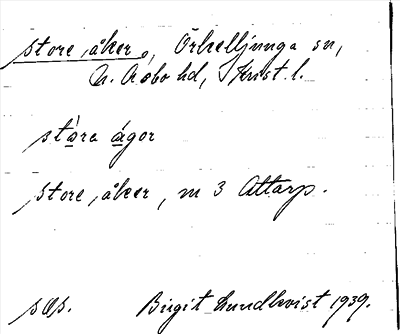 store åker, Örkelljunga sn,
N. Åsbo hd, Krist. l.
stòra ágor
store åker, m 3 Attarp.
sås.
Birgit Lundkvist 1939.